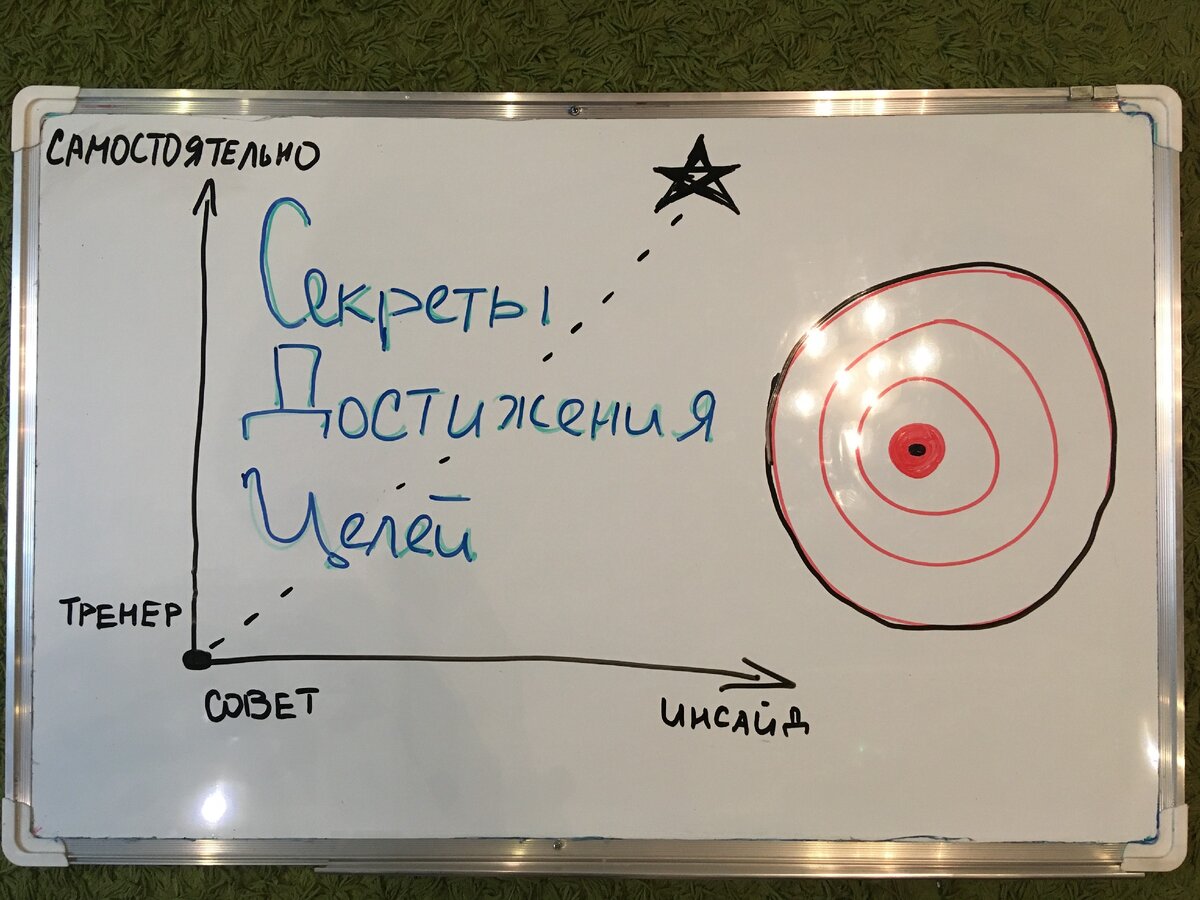 САМОСТОЯТЕЛЬНО
Секреты
Достижения
Целей
ТРЕНЕР
СОВЕТ
ИНСАЙД